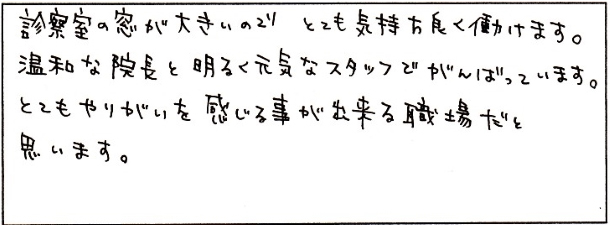 診察室の窓が大きいので とても気持ち良く働けます。
温和な院長と明るく元気なスタッフでがんばっています。
とてもやりがいを感じる事が出来る職場だと
思います。